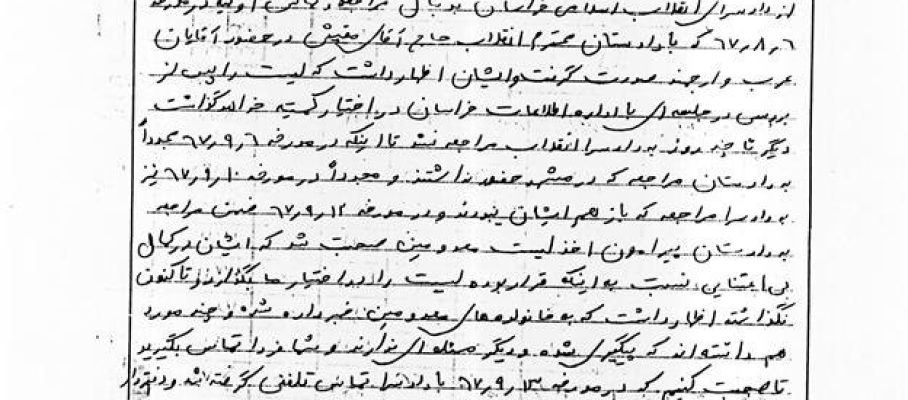 از دادسرای انقلاب اسلامی خراسان بدنبال مراجعه
۶ر۸ر۶۷ که با دادستان محترم انقلاب حاج آقای مفیش در حضور آقایان
عرب و ارجمند صورت گرفت و ایشان اظهار داشت که لیست را پس از
بررسی در جلسه‌ای با اداره اطلاعات خراسان در اختیار کمیته خواهد گذاشت
دیگر تا چند روز به دادسرا انقلاب مراجعه نشد تا اینکه در مورخه ۶ر۹ر۶۷ مجدداً
به دادستان مراجعه که در مشهد حضور نداشتند و مجدداً در مورخه ۱۰ر۹ر۶۷ نیز
به دادسرا مراجعه که باز هم ایشان نبودند و در مورخه ۱۲ر۹ر۶۷ ضمن مراجعه
به دادستان پیرامون اخذ لیست معدومین صحبت شد که ایشان در کمال
بی اعتنایی نسبت به اینکه قرار بوده لیست را در اختیار ما بگذارند و تاکنون
نگذاشته اظهار داشت که به خانواده‌های معدومین خبر داده شده و چند مورد
هم دانسته‌اند که پیگیری شده و دیگر مسئله‌ای ندارند و شما فردا تماس بگیرید
تا صحبت کنیم که در مورخه ۱۳ر۹ر۶۷ با دادسرا تماس تلفنی گرفته شد و دفتردار